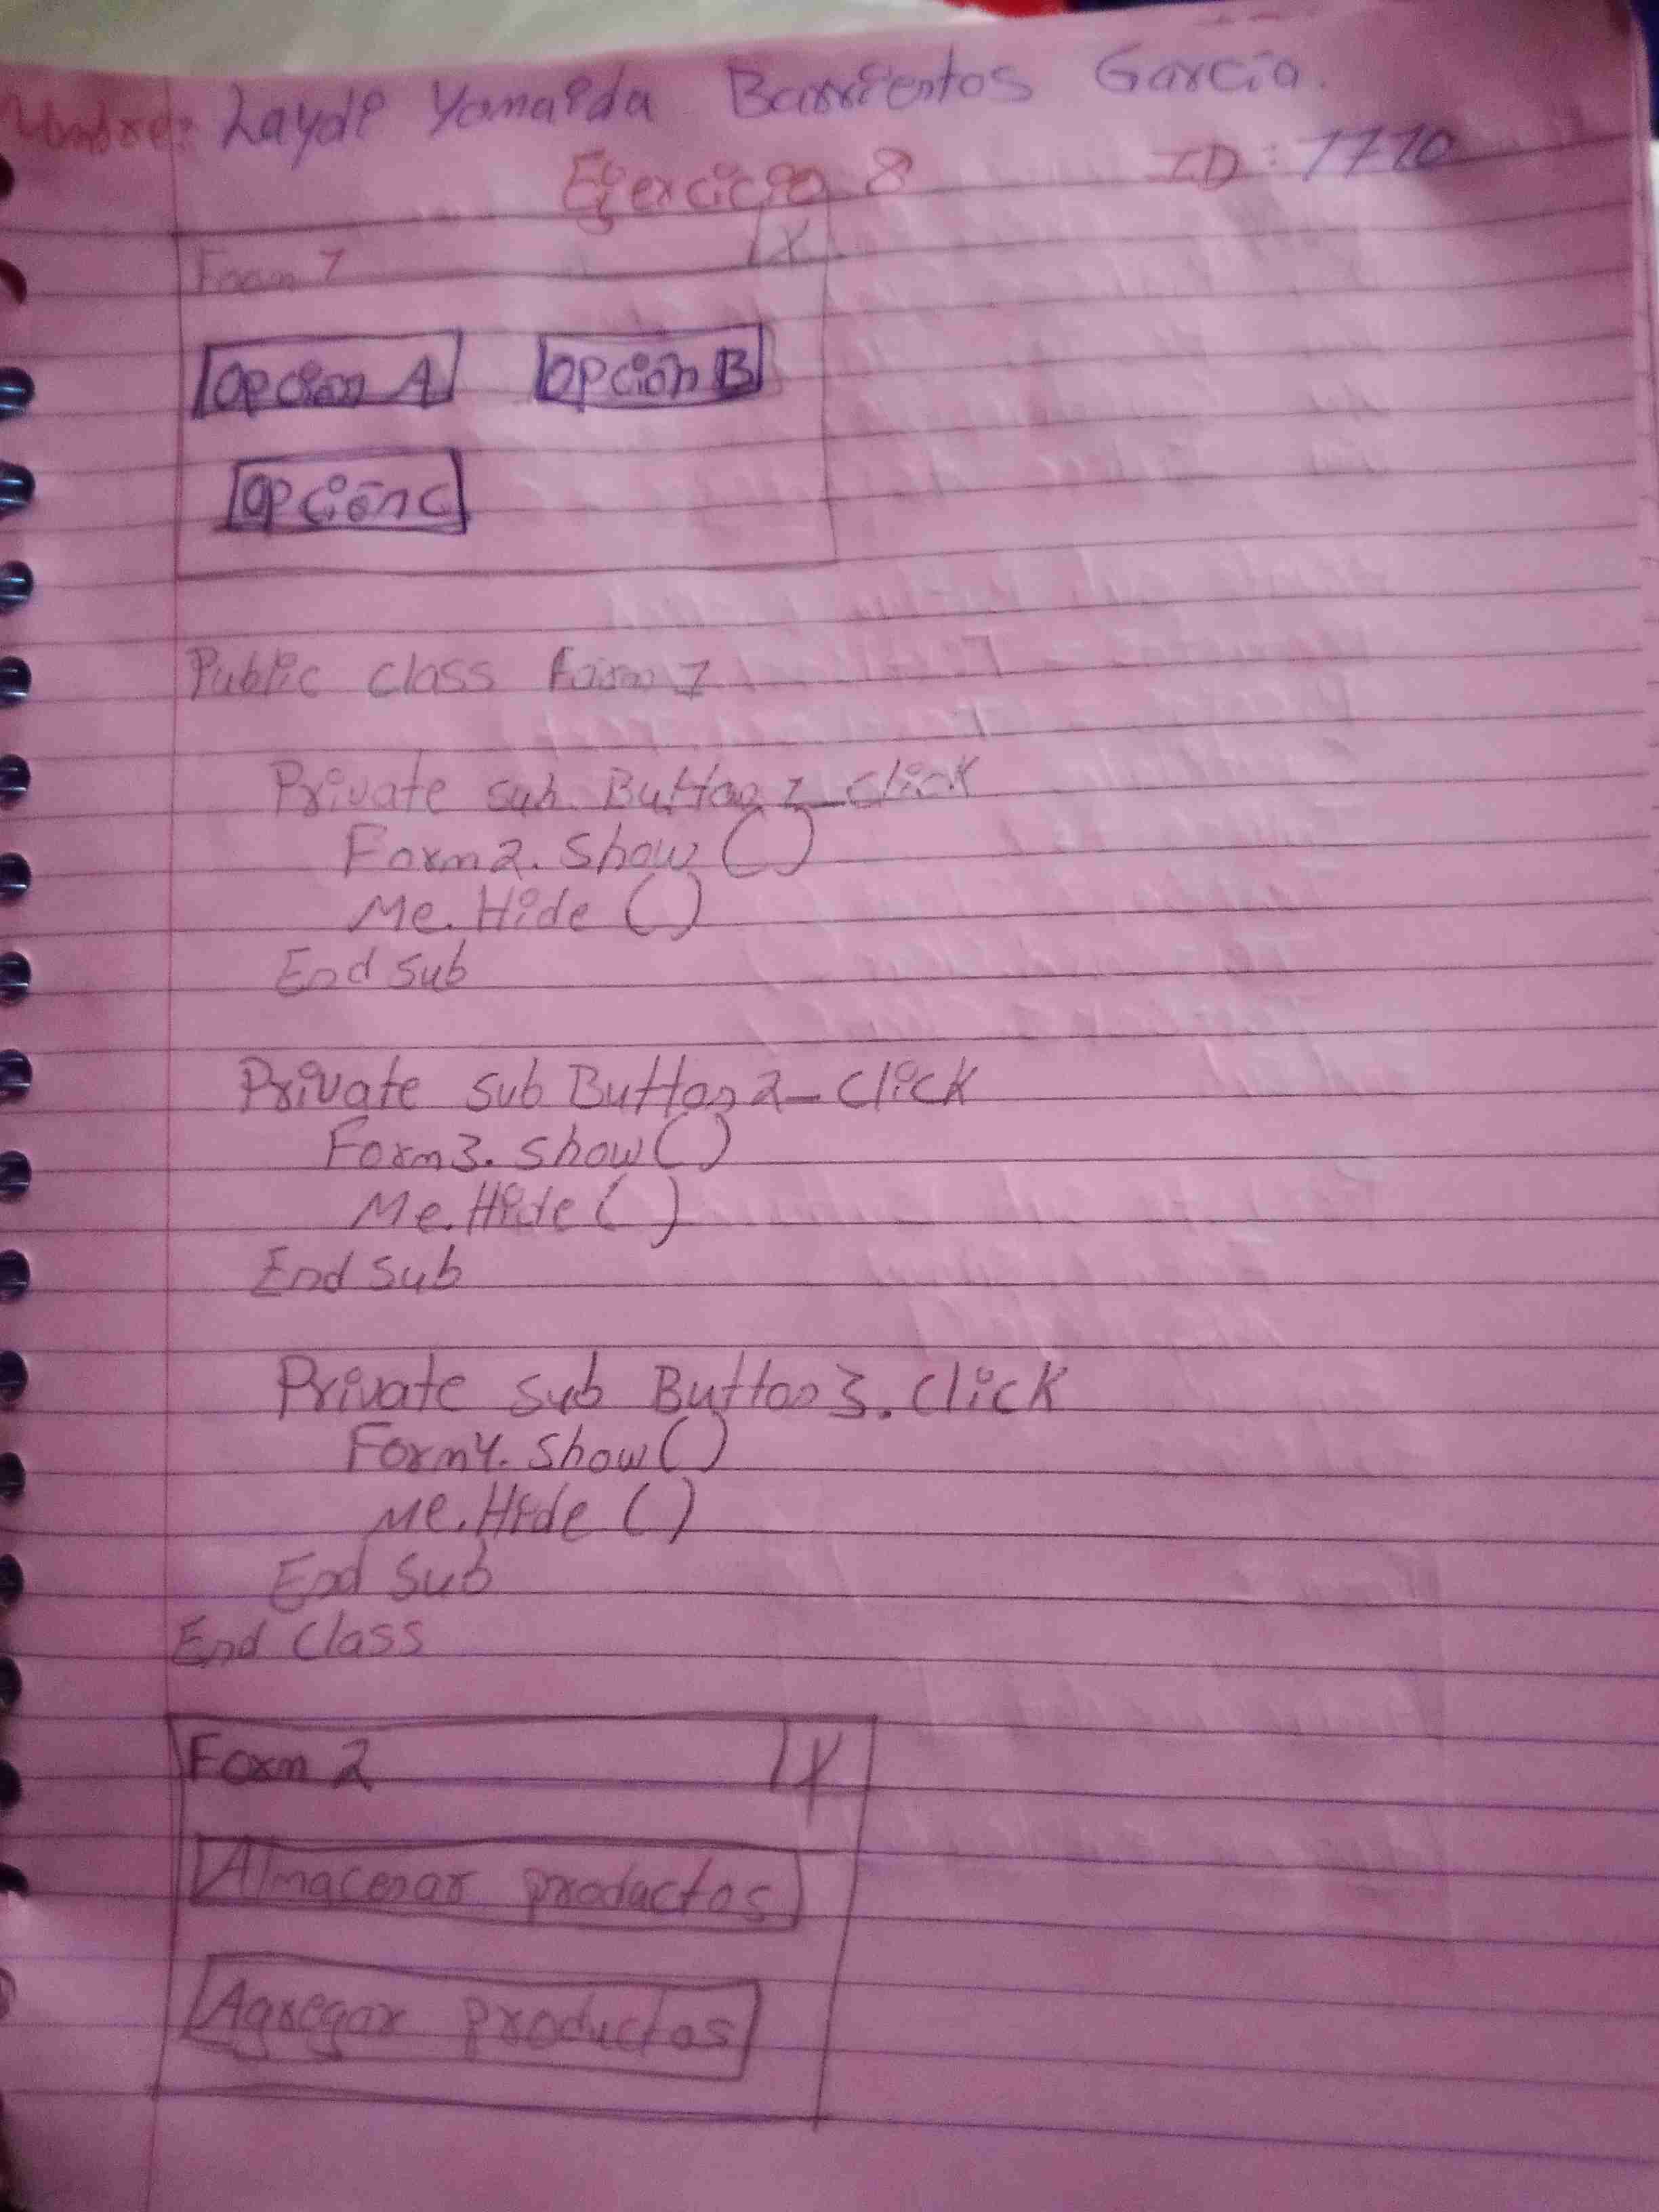 Nombre: Laydi Yomaida Barrientos García.
Ejercicio 8 ID: 1710
Form 1 X
Opción A Opción B
Opción C
Public class Form 1
Private sub Button 1_click
Form2. Show ()
Me. Hide ()
End Sub
Private sub Button 2_click
Form3. show ()
Me. Hide ()
End Sub
Private sub Button 3. click
Form4. Show ()
Me. Hide ()
End Sub
End Class
Form 2 X
Almacenar productos
Agregar productos